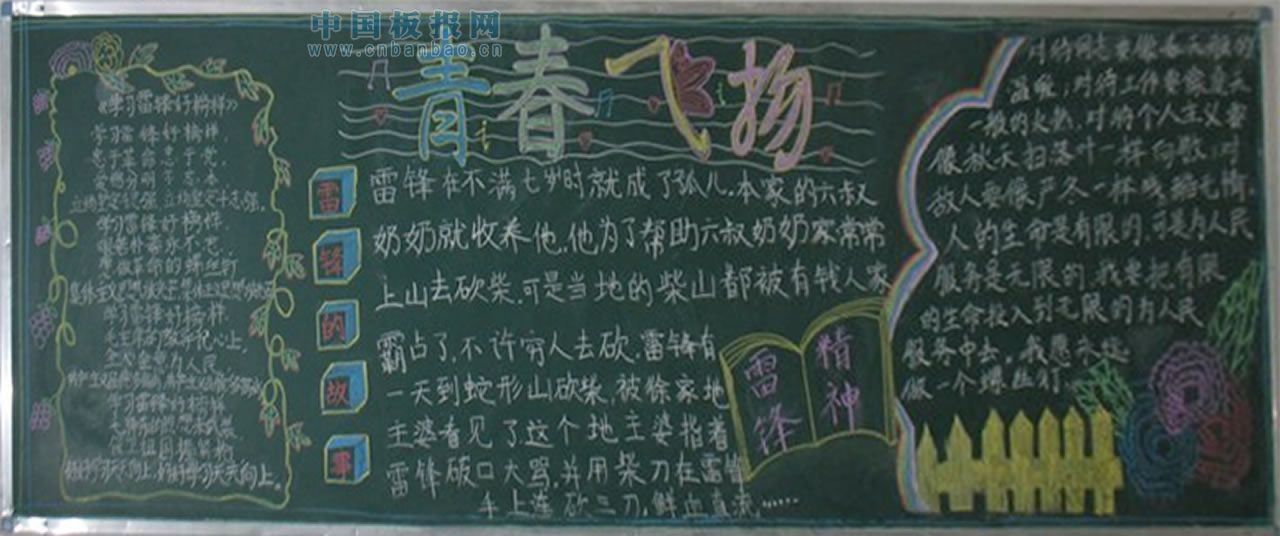 中国板报网
www.cnbanbao.cn
青春飞扬
《学习雷锋好榜样》
学习雷锋好榜样
忠于革命忠于党,
立场坚定斗志强。
学习雷锋好榜样
艰苦朴素永不忘,
学习雷锋好榜样
毛主席的教导记心上,
全心全意为人民
学习雷锋好榜样
雷锋的故事
雷锋在不满七岁时就成了孤儿.本家的六叔
奶奶就收养他.他为了帮助六叔奶奶家常常
上山去砍柴.可是当地的柴山都被有钱人家
霸占了.不许穷人去砍.雷锋有
一天到蛇形山砍柴.被徐家地
主婆看见了这个地主婆指着
雷锋破口大骂.并用柴刀在雷锋
手上连砍三刀,鲜血直流……
雷锋
精神
对待同志要像春天般的
温暖;对待工作要像夏天
一般的火热.对待个人主义要
像秋天扫落叶一样
敌人要像严冬一样残酷无情.
人的生命是有限的.可是为人民
服务是无限的.我要把有限
的生命投入到无限的为人民
服务中去。我愿永远
做一个螺丝钉.